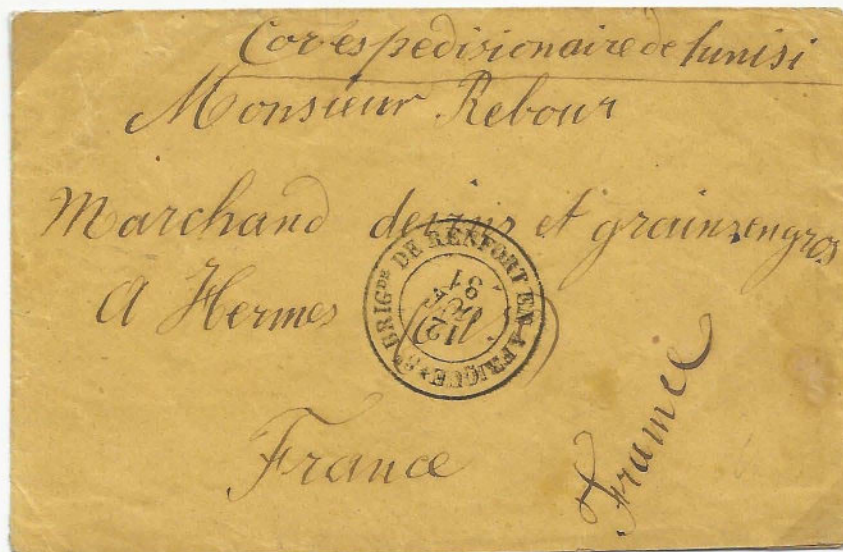 Corespedisionaire de tunisi
Monsieur Rebour
Marchand de vins et grains en gros
A Hermes
BRIG^DE DE RENFORT EN AFRIQUE
12
OCT
81
France
France